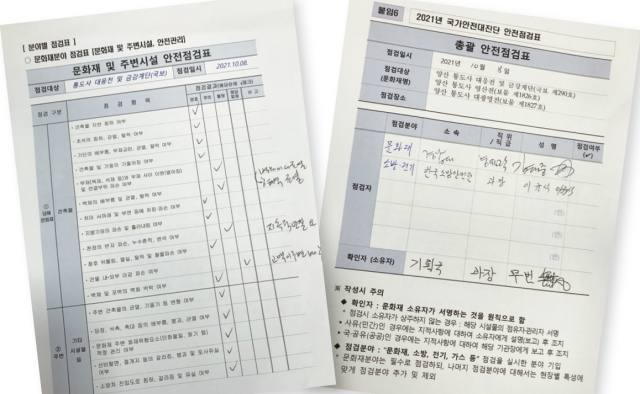 [ 분야별 점검표 ]
○ 문화재분야 점검표 [문화재 및 주변시설, 안전관리]
문화재 및 주변시설 안전점검표
점검대상 통도사 대웅전 및 금강계단(국보) 점검일시 2021.10.08.
점검 구분 점 검 항 목 점검결과(해당란에 체크)
양호
① 당해 문화재
건축물
· 건축물 지반 침하 여부
· 초석의 침하, 균열, 탈락 여부
· 기단의 배부름, 부재교란, 균열, 탈락 여부
· 건축물 및 기둥의 기울어짐 여부
· 벽체의 배부름 및 균열, 탈락 여부
· 처마 서까래 및 부연 등에 처짐·파손 여부
· 지붕기와의 파손 및 흘러내림 여부
· 천장의 반자 파손, 누수흔적, 변색 여부
· 창호 비틀림, 뚫림, 탈락 및 철물파손 여부
· 건물 내·외부 마감 파손 여부
· 벽체 및 포벽의 벽화 박락 여부
② 주변
기타 시설물 등
· 주변 건축물의 균열, 기울기 등 변형 여부
· 담장, 석축, 축대 등의 배부름, 붕괴, 균열 여부
· 소방차 진입도로 폭하, 갈라짐 및 유실 여부
붙임6
2021년 국가안전대진단 안전점검표
총괄 안전점검표
점검일시 2021년 10 월 8 일
점검대상
(문화재명)
양산 통도사 대웅전 및 금강계단(국보 제290호)
양산 통도사 영산전(보물 제1826호)
양산 통도사 대광명전(보물 제1827호)
점검장소
점검분야 소 속 직위/직급 성 명 점검여부(✓)
점검자
문화재
소방·전기 과장
(인)
(인)
(인)
확인자 (소유자) 기획국 과장
※ 작성시 주의
◆ 확인자 : 문화재 소유자가 서명하는 것을 원칙으로 함
* 점검시 소유자가 상주하지 않는 경우 : 해당 시설물의 점유자관리자 서명
* 사유(민간)인 경우에는 지적사항에 대하여 소유자에게 설명(보고) 후 조치
* 국·공유(공공)인 경우에는 지적사항에 대하여 해당 기관장에게 보고 후 조치
◆ 점검분야 : "문화재, 소방, 전기, 가스 등" 점검을 실시한 분야 기입
* 문화재분야는 필수로 점검하되, 나머지 점검분야에 대해서는 현장별 특성에
맞게 점검분야 추가 및 제외